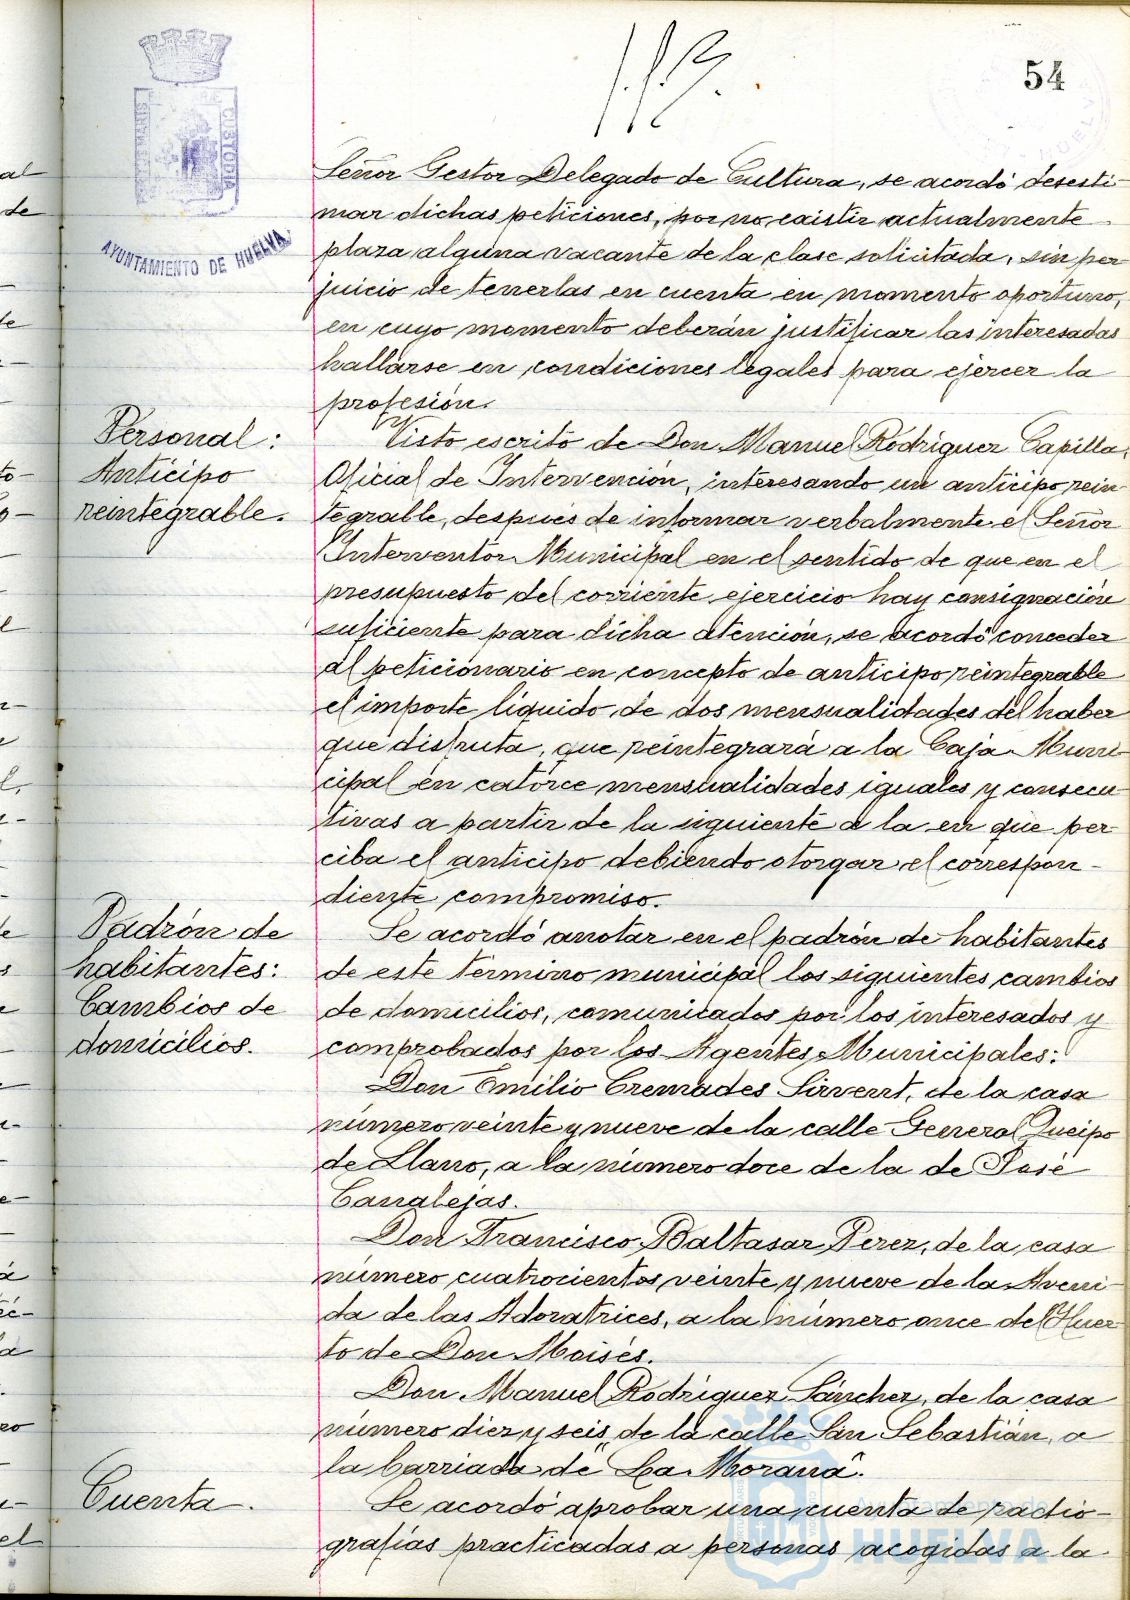 54
AYUNTAMIENTO DE HUELVA
Señor Gestor Delegado de Cultura, se acordó desesti-
mar dichas peticiones, por no existir actualmente
plaza alguna vacante de la clase solicitada, sin per-
juicio de tenerlas en cuenta en momento oportuno,
en cuyo momento deberán justificar las interesadas
hallarse en condiciones legales para ejercer la
profesión.
Personal:
Anticipo
reintegrable.
Visto escrito de Don Manuel Rodríguez Capilla,
Oficial de Intervención, interesando un anticipo rein-
tegrable, después de informar verbalmente el Señor
Interventor Municipal en el sentido de que en el
presupuesto del corriente ejercicio hay consignación
suficiente para dicha atención, se acordó conceder
al peticionario en concepto de anticipo reintegrable
el importe líquido de dos mensualidades del haber
que disfruta, que reintegrará a la Caja Muni-
cipal en catorce mensualidades iguales y consecu-
tivas a partir de la siguiente a la en que per-
ciba el anticipo debiendo otorgar el correspon-
diente compromiso.
Padrón de
habitantes:
Cambios de
domicilios.
Se acordó anotar en el padrón de habitantes
de este término municipal los siguientes cambios
de domicilios, comunicados por los interesados y
comprobados por los Agentes Municipales:
Don Emilio Cremades Sirvent, de la casa
número veinte y nueve de la calle General Queipo
de Llano, a la número doce de la de José
Canalejas.
Don Francisco Baltasar Pérez, de la casa
número cuatrocientos veinte y nueve de la Aveni-
da de las Adoratrices, a la número once del Huer-
to de Don Moisés.
Don Manuel Rodríguez Sánchez, de la casa
número diez y seis de la calle San Sebastián, a
la barriada de "La Morana".
Cuenta.
Se acordó aprobar una cuenta de radio-
grafías practicadas a personas acogidas a la
Ayuntamiento de
HUELVA